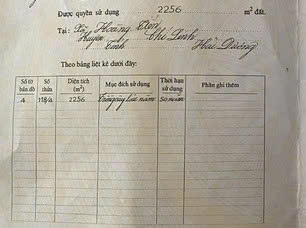 Được quyền sử dụng 2256 m² đất.
Tại : Xã Hoàng Tiến
Huyện Chí Linh
Tỉnh Hải Dương
Theo bảng liệt kê dưới đây:
Số tờ bản đồ Số thửa Diện tích (m²) Mục đích sử dụng Thời hạn sử dụng Phần ghi thêm
4 2256 lâu năm 50 năm